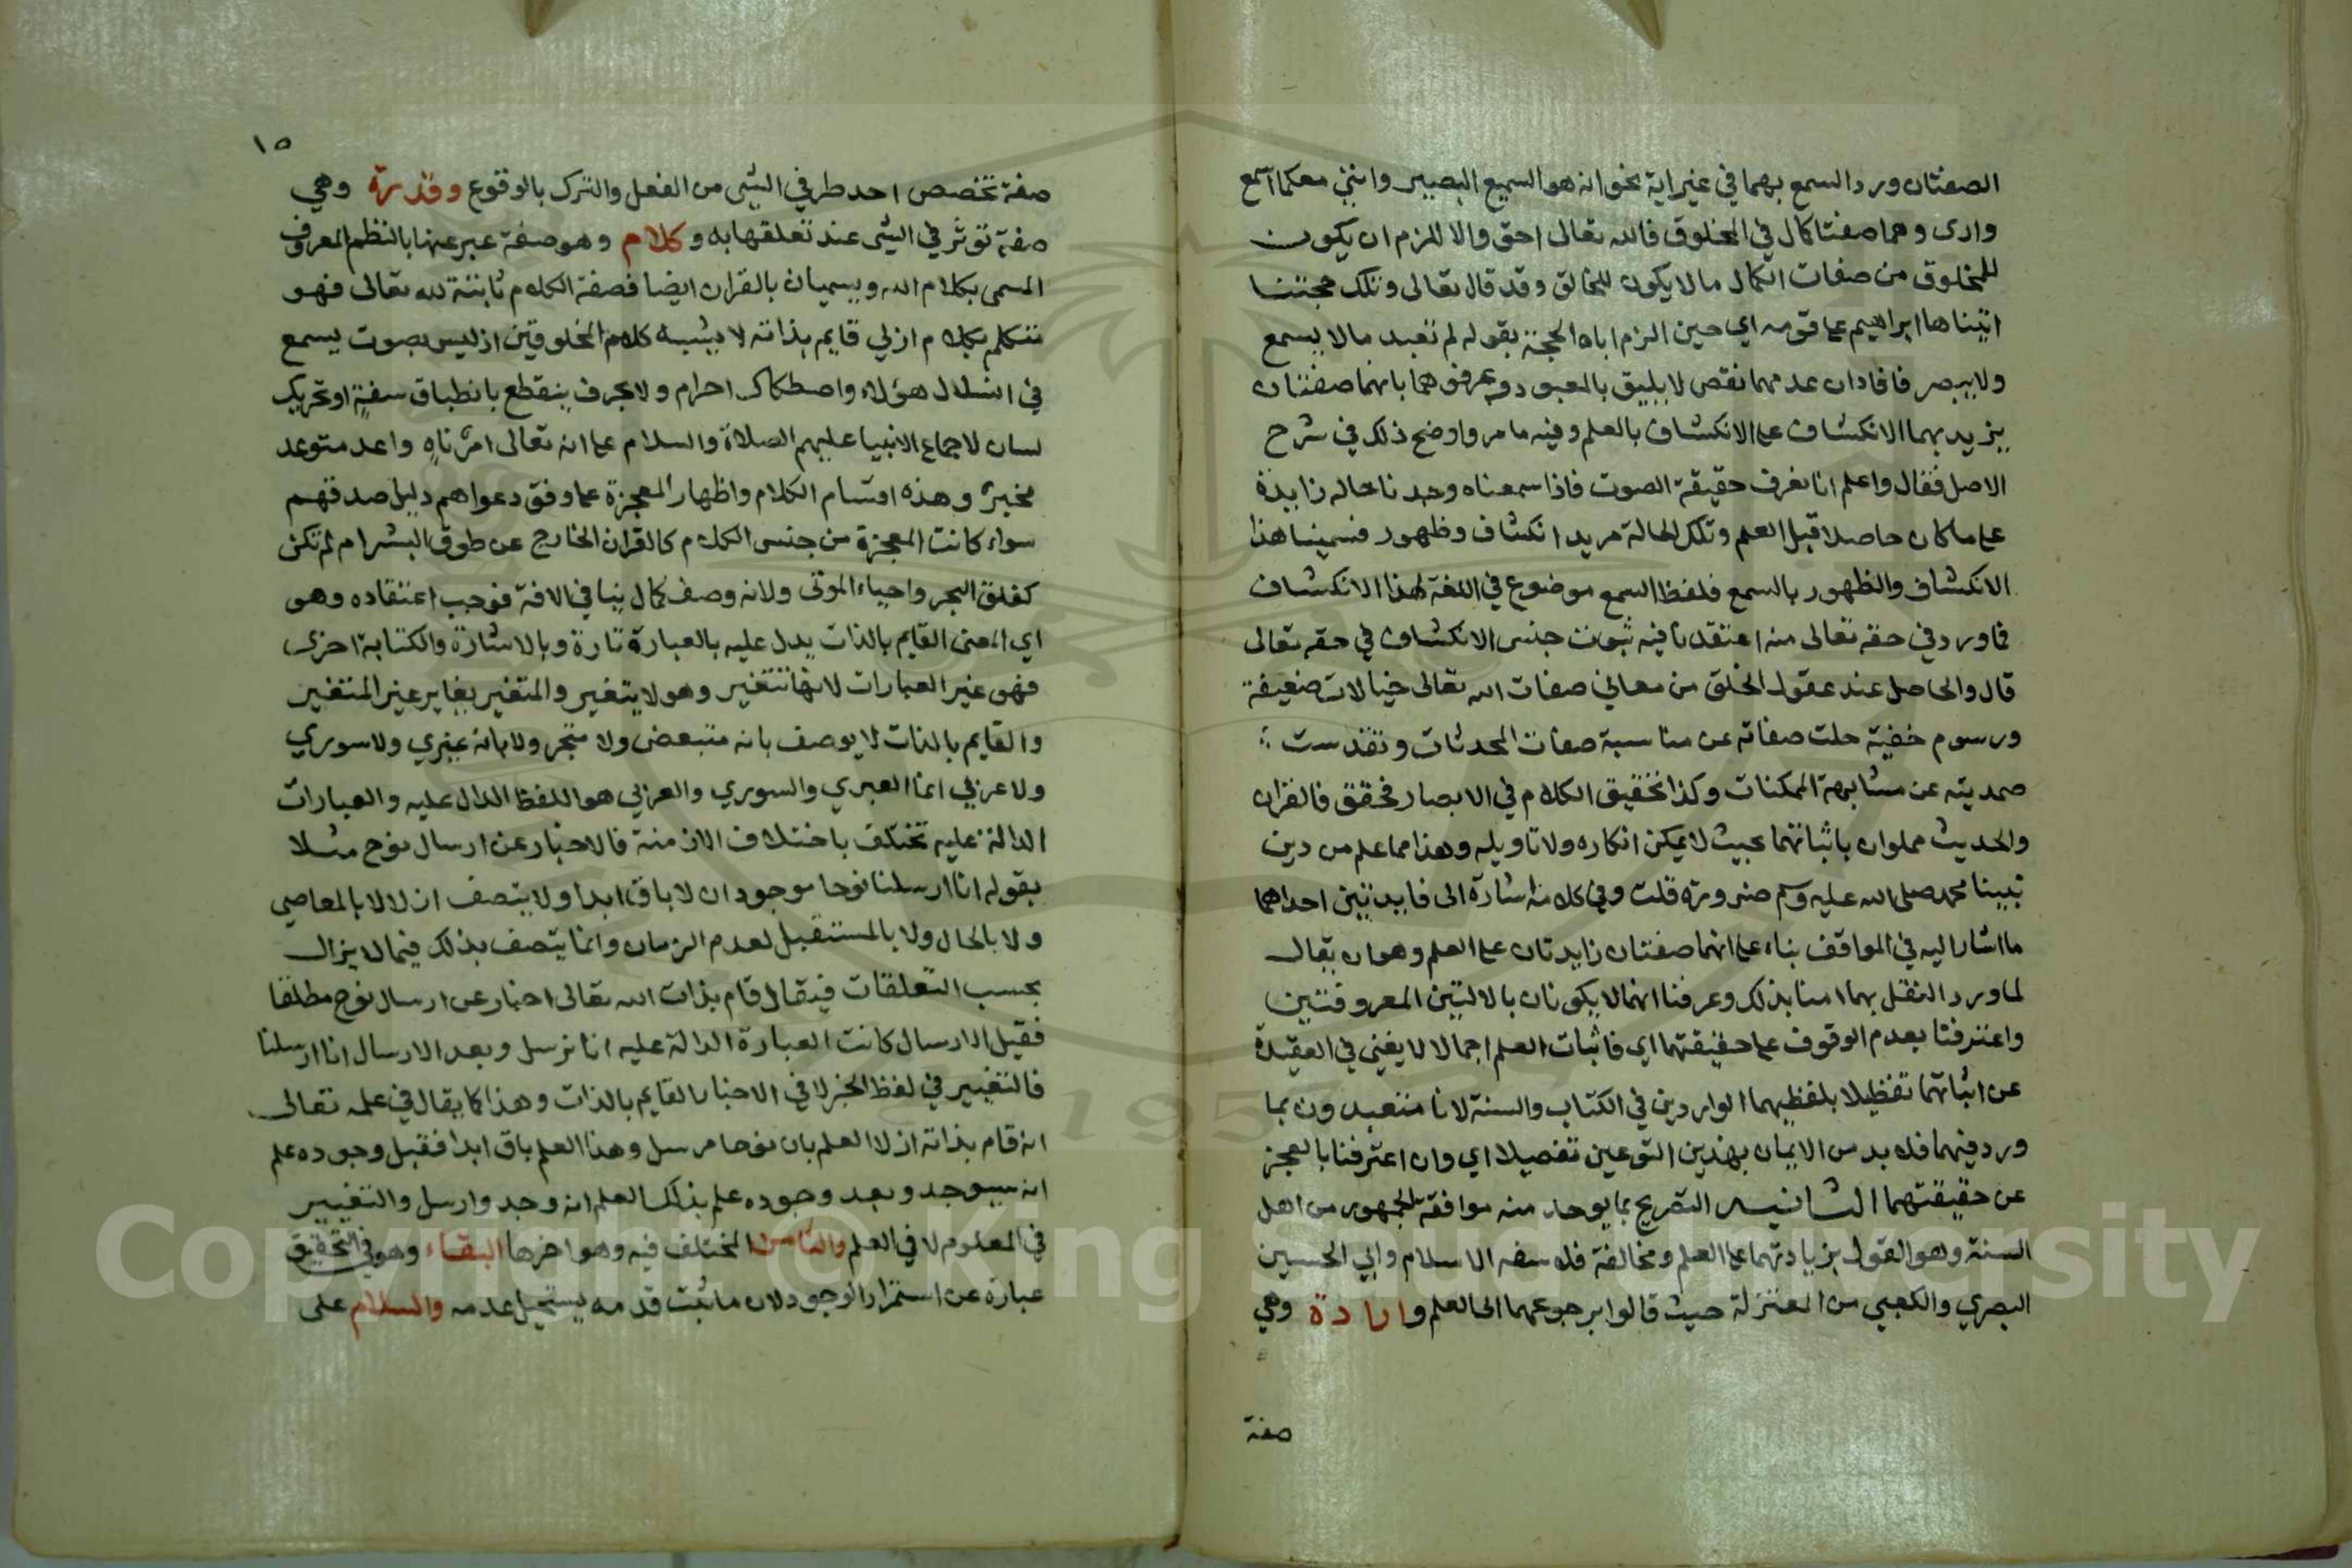 الصفتان ورد السمع بهما في غير اية نحو انه هو السميع البصير وانني معكما اسمع
وارى وهما صفتا كمال في المخلوق فالله تعالى احق والا للزم ان يكون
للمخلوق من صفات الكمال ما لا يكون للخالق وقد قال تعالى وتلك حجتنا
اتيناها ابراهيم على قومه اي حين الزم اباه الحجة بقوله لم تعبد ما لا يسمع
ولا يبصر فافاد ان عدمهما نقص لا يليق بالمعبود وعرفوهما بانهما صفتان
يزيد بهما الانكشاف على الانكشاف بالعلم وفيه ما مر واوضح ذلك في شرح
الاصل فقال واعلم انا نعرف حقيقة الصوت فاذا سمعناه وجدنا حاله زايدة
على ما كان حاصلا قبل العلم وتلك الحالة مريد انكشاف وظهور فسمينا هذا
الانكشاف والظهور بالسمع فلفظ السمع موضوع في اللغة لهذا الانكشاف
فما ورد في حقه تعالى منه اعتقدنا فيه ثبوت جنس الانكشاف في حقه تعالى
قال والحاصل عند عقول الخلق من معاني صفات الله تعالى خيالات ضعيفة
ورسوم خفية جلت صفاته عن مناسبة صفات المحدثات وتقدست
صمديته عن مشابهة الممكنات وكذا تحقيق الكلام في الابصار محقق فالقران
والحديث مملوان باثباتهما بحيث لا يمكن انكاره ولا تاويله وهذا مما علم من دين
نبينا محمد صلى الله عليه وسلم ضرورة قلت وفي كلامه اشارة الى فايدتين احداهما
ما اشار اليه في المواقف بناء على انهما صفتان زايدتان على العلم وهو ان يقال
لما ورد النقل بهما امنا بذلك وعرفنا انهما لا يكونان بالالتين المعروفتين
واعترفنا بعدم الوقوف على حقيقتهما اي فاثبات العلم اجمالا لا يغني في العقيدة
عن اثباتهما تفظيلا بلفظيهما الواردين في الكتاب والسنة لانا متعبدون بما
ورد فيهما فلا بد من الايمان بهذين النوعين تفصيلا اي وان اعترفنا بالعجز
عن حقيقتهما الثانيه التصريح بما يوحد منه موافقة الجمهور من اهل
السنة وهو القول بزيادتهما على العلم ومخالفة فلاسفه الاسلام وابي الحسين
البصري والكعبي من المعتزلة حيث قالوا برجوعهما الى العلم وارادة وهي
صفة
١٥
صفة تخصص احد طرفي الشي من الفعل والترك بالوقوع وقدرة وهي
صفة تؤثر في الشي عند تعلقها به وكلام وهو صفة عبر عنها بالنظم المعروف
المسمى بكلام الله ويسميان بالقران ايضا فصفة الكلام ثابتة لله تعالى فهو
متكلم بكلام ازلي قايم بذاته لا يشبه كلام المخلوقين اذ ليس بصوت يسمع
في انسلال هؤلاء واصطكاك احرام ولا بحرف ينقطع بانطباق سفة او تحريك
لسان لاجماع الانبيا عليهم الصلاة والسلام على انه تعالى امر ناه واعد متوعد
مخبر وهذه اقسام الكلام واظهار المعجزة على وفق دعواهم دليل صدقهم
سواء كانت المعجزة من جنس الكلام كالقران الخارج عن طوق البشر ام لم تكن
كفلق البحر واحياء الموتى ولانه وصف كمال ينافي الافة فوجب اعتقاده وهو
اي المعنى القايم بالذات يدل عليه بالعبارة تارة وبالاشارة والكتابة اخرى
فهو غير العبارات لانها تتغير وهو لا يتغير والمتغير يغاير غير المتغير
والقايم بالذات لا يوصف بانه متبعض ولا متجر ولا بانه عبري ولا سوري
ولا عربي انما العبري والسوري والعربي هو اللفظ الدال عليه والعبارات
الدالة عليه تختلف باختلاف الازمنة فالاخبار عن ارسال نوح مثلا
بقوله انا ارسلنا نوحا موجود ان لا باق ابدا ولا يتصف ازلا لا بالمعاصي
ولا بالحال ولا بالمستقبل لعدم الزمان وانما يتصف بذلك فيما لا يزال
بحسب التعلقات فيقال قام بذات الله تعالى اخبار عن ارسال نوح مطلقا
فقيل الارسال كانت العبارة الدالة عليه انا نرسل وبعد الارسال انا ارسلنا
فالتغيير في لفظ الخبر لا في الاخبار القايم بالذات وهذا كما يقال في علمه تعالى
انه قام بذاته ازلا العلم بان نوحا مرسل وهذا العلم باق ابدا فقبل وجوده علم
انه سيوجد وبعد وجوده علم بذلك العلم انه وجد وارسل والتغيير
في المعلوم لا في العلم والثامن المختلف فيه وهو اخرها البقاء وهو في التحقيق
عبارة عن استمرار الوجود لان ما ثبت قدمه يستحيل عدمه والسلام على
Copyright © King Saud University